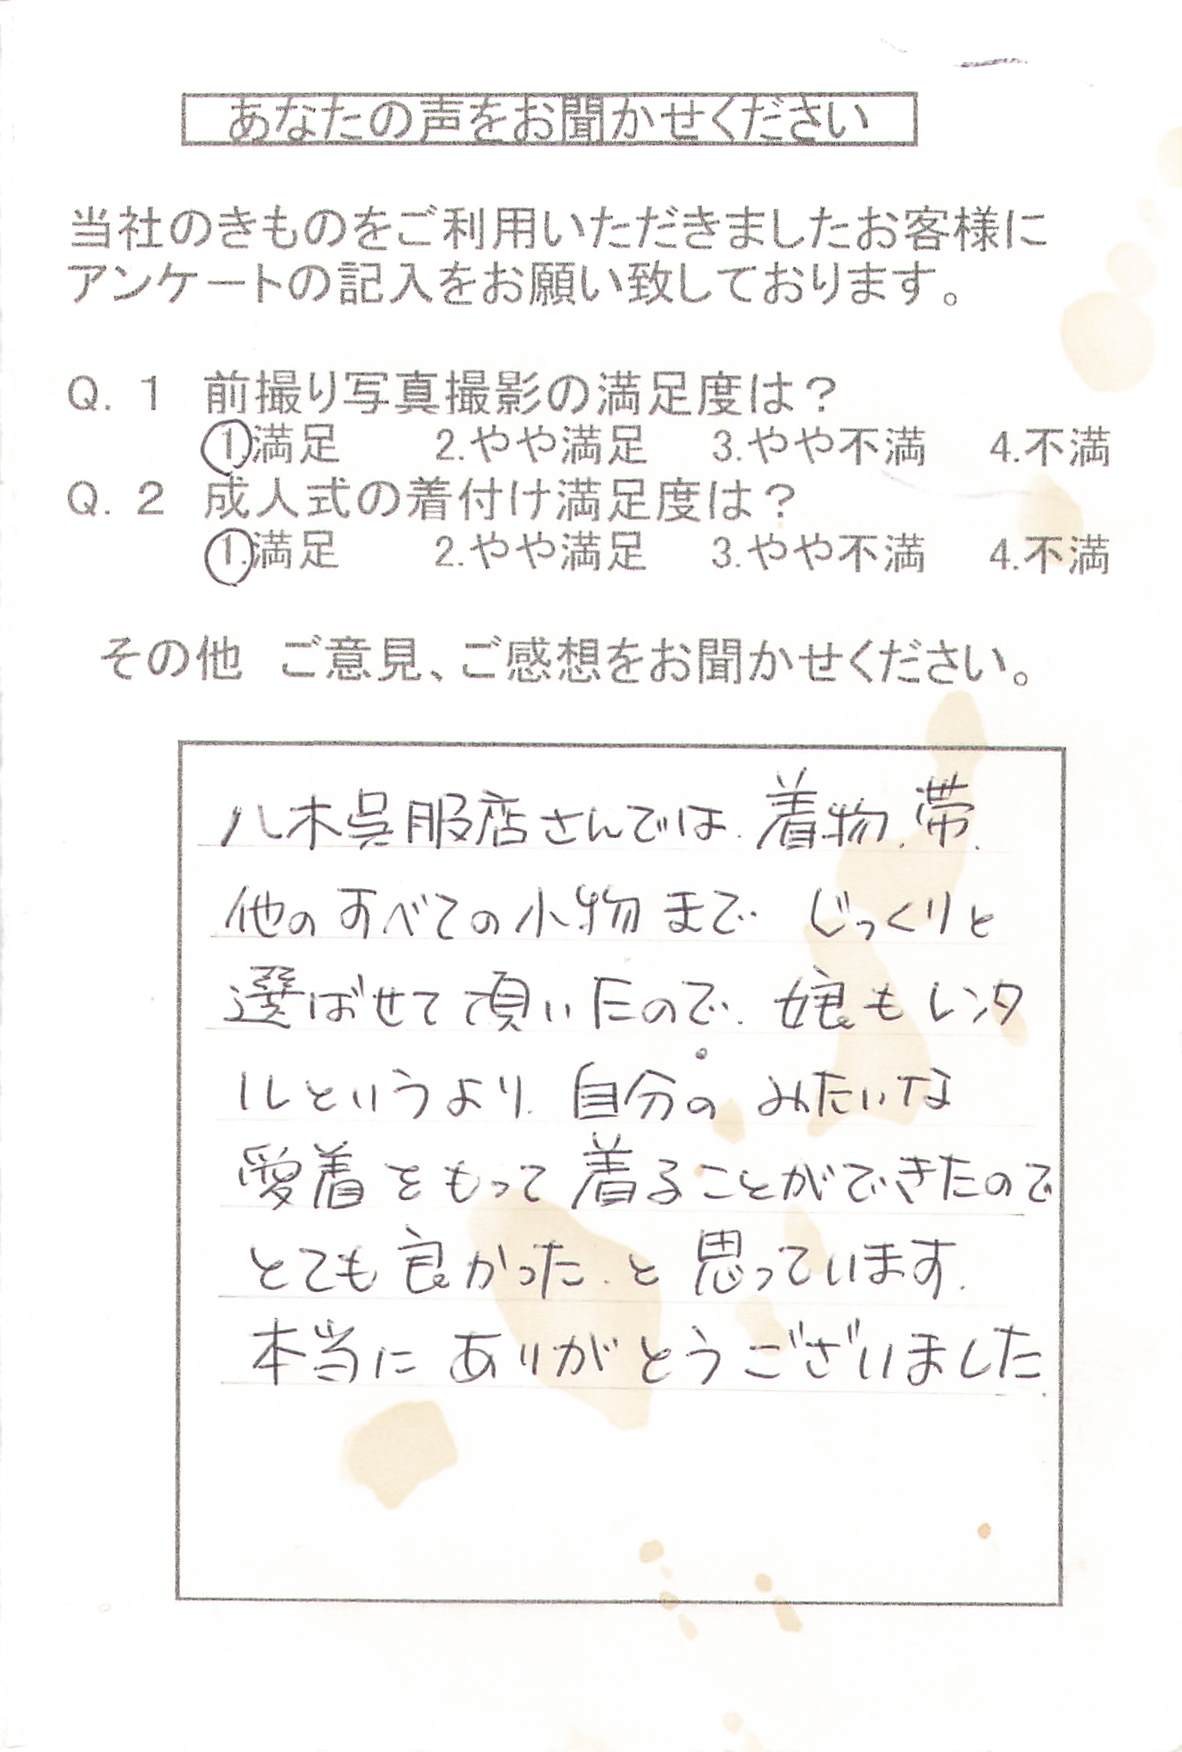 あなたの声をお聞かせください
当社のきものをご利用いただきましたお客様に
アンケートの記入をお願い致しております。
Q.1 前撮り写真撮影の満足度は?
1.満足 2.やや満足 3.やや不満 4.不満
Q.2 成人式の着付け満足度は?
1.満足 2.やや満足 3.やや不満 4.不満
その他 ご意見、ご感想をお聞かせください。
八木呉服店さんでは、着物、帯、
他のすべての小物まで じっくりと
選ばせて頂いたので、娘もレンタ
ルというより、自分の みたいな
愛着をもって着ることができたので
とても良かった、と思っています。
本当に ありがとうございました。